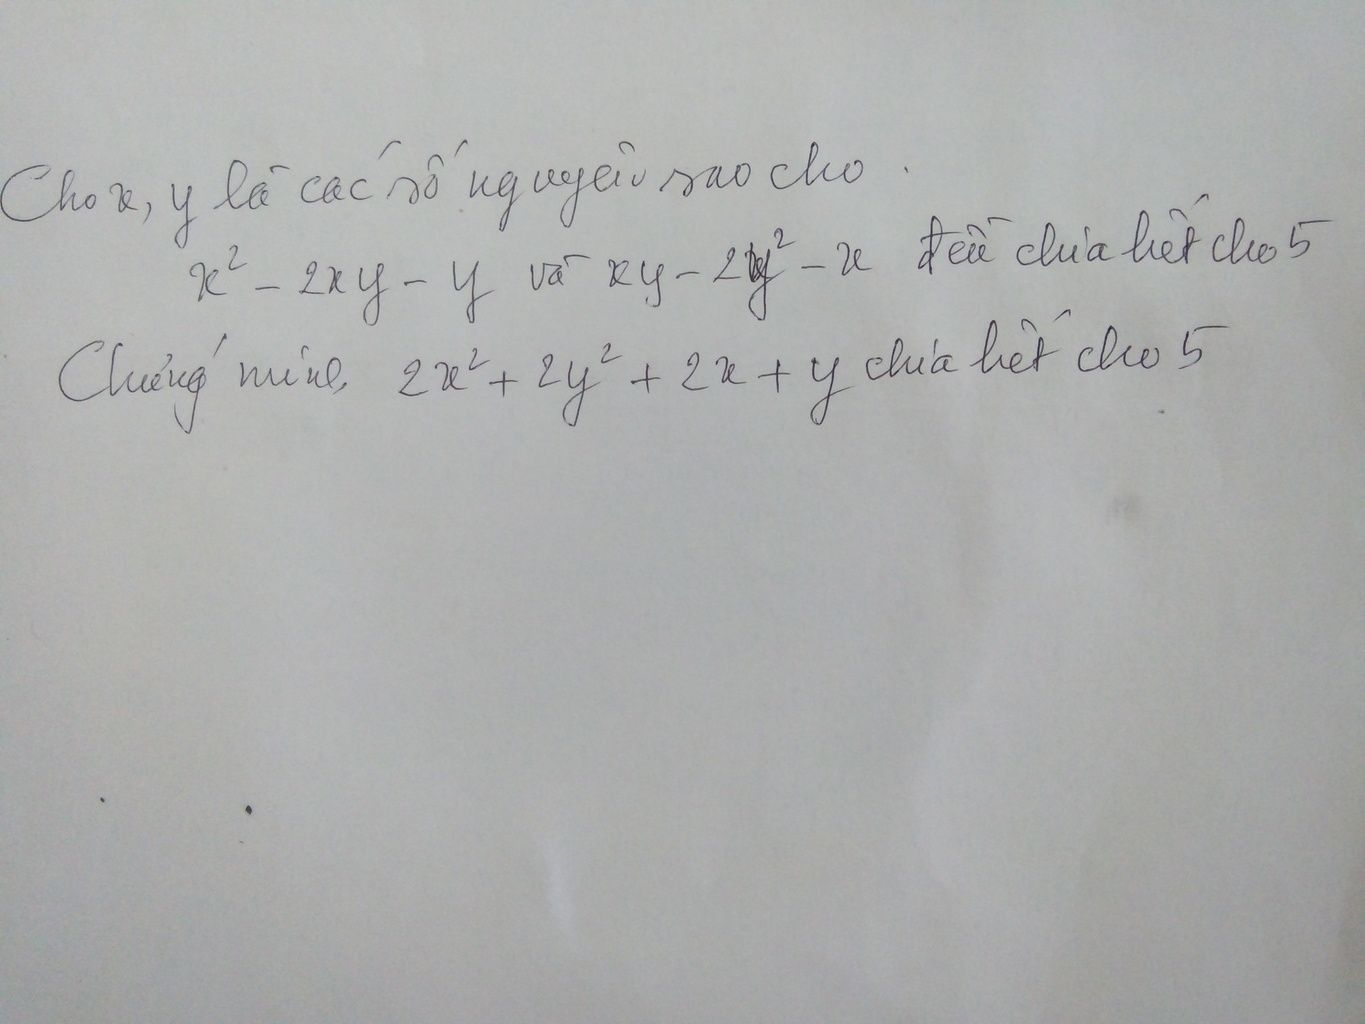 Cho x, y là các số nguyên sao cho.
x² - 2xy - y và xy - 2y² - x đều chia hết cho 5
Chứng minh 2x² + 2y² + 2x + y chia hết cho 5